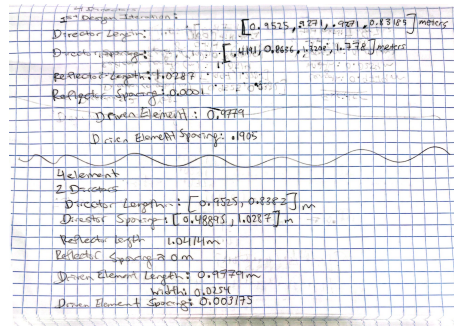 1st Design Iteration:
Director Length: [0.9525, .9271, .9271, 0.83185] meters
Director Spacing: [.4191, 0.8636, 1.3208, 1.778] meters
Reflector Length: 1.0287
Reflector Spacing: 0.0001
Driven Element: 0.9779
Driven Element Spacing: .1905
4 element
2 Directors
Director Length: [0.9525, 0.8382] m
Director Spacing: [0.48895, 1.0287] m
Reflector legth 1.0414m
Reflector Spacing 0m
Driven Element Length: 0.9779m
Width: 0.0254
Driven Element Spacing: 0.003175